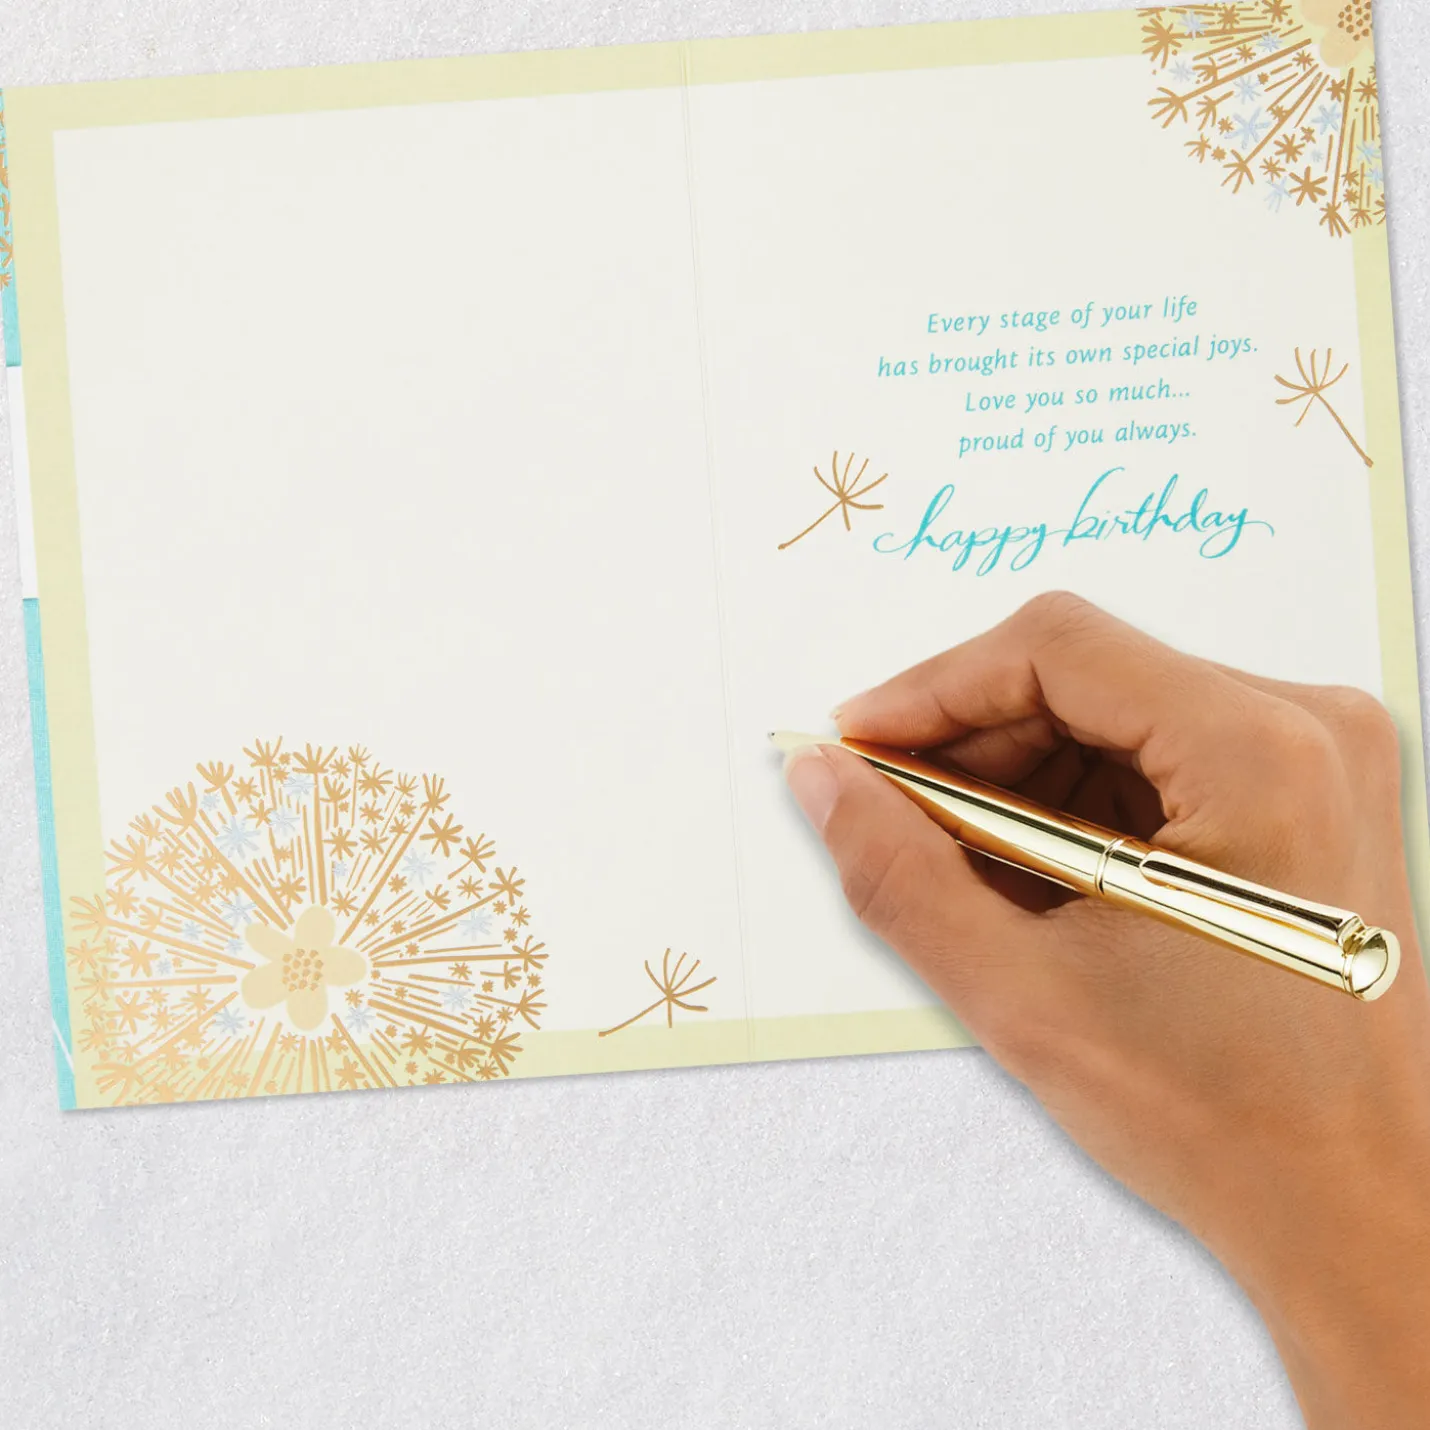 Every stage of your life
has brought its own special joys.
Love you so much...
proud of you always.
happy birthday